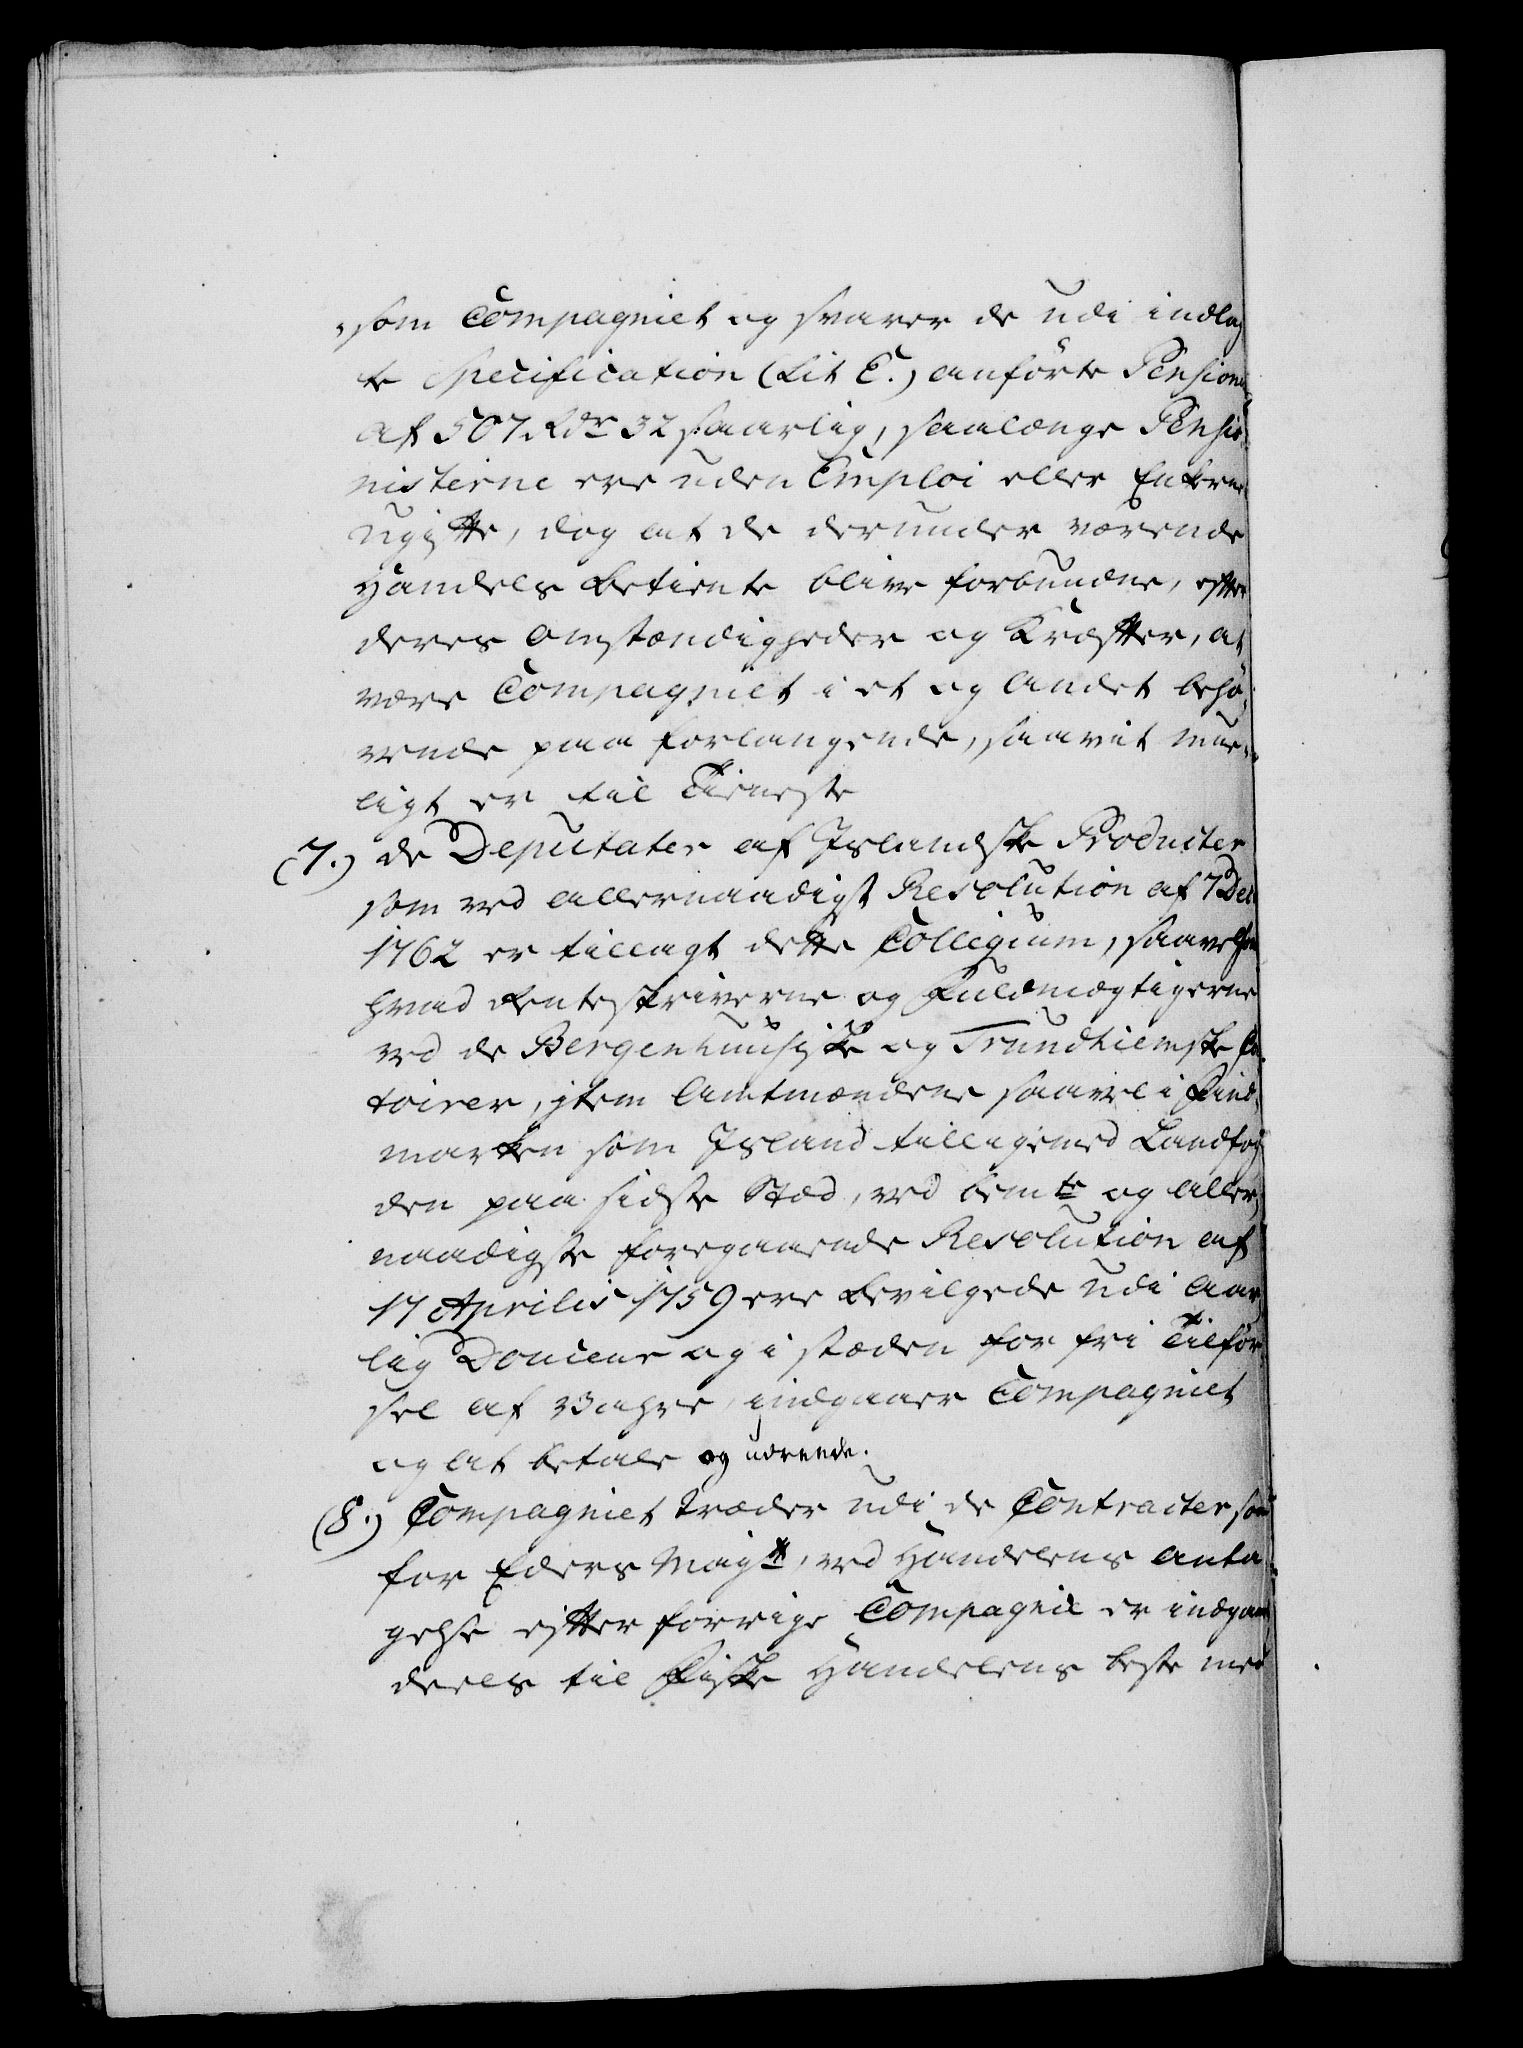 som Compagniet og svarer de udi indlag
te Specification (Lit E.) anførte Pensioner
af 507 Rdr 32 s aarlig, saalænge Pensio
nisterne ere uden Emploi eller Enkerne
ugifte, dog at de derunder værende
Handels Betiente blive forbundne, efter
deres Omstændigheder og Kræfter, at
være Compagniet i et og Andet behø-
vende paa forlangende, saavit mue-
ligt er til Tieneste
(7.) de Deputater af Islandske Producter
som ved allernaadigst Resolution af 7 Dec
1762 er tillagt dette Collegium, saavelsom
hvad Renteskriverne og Fuldmægtigerne
ved de Bergenhuusiske og Trundhiemske Co
toirer, item Amtmændene saavel i Find-
marken som Island tilligemed Landfog
den paa sidste Stæd, ved bemte og aller
naadigste foregaaende Resolution af
17 Aprilis 1759 ere bevilgede udi Aar
lig Douceur og i stæden for fri Tilfør
sel af Vahre, indgaaer Compagniet
og at betale og udreede.
(8.) Compagniet træder udi de Contracter som
for Eders Mayt, ved Handelens Anta-
gelse efter forrige Compagnie er indgaaet
deels til Fiske Handelens beste med